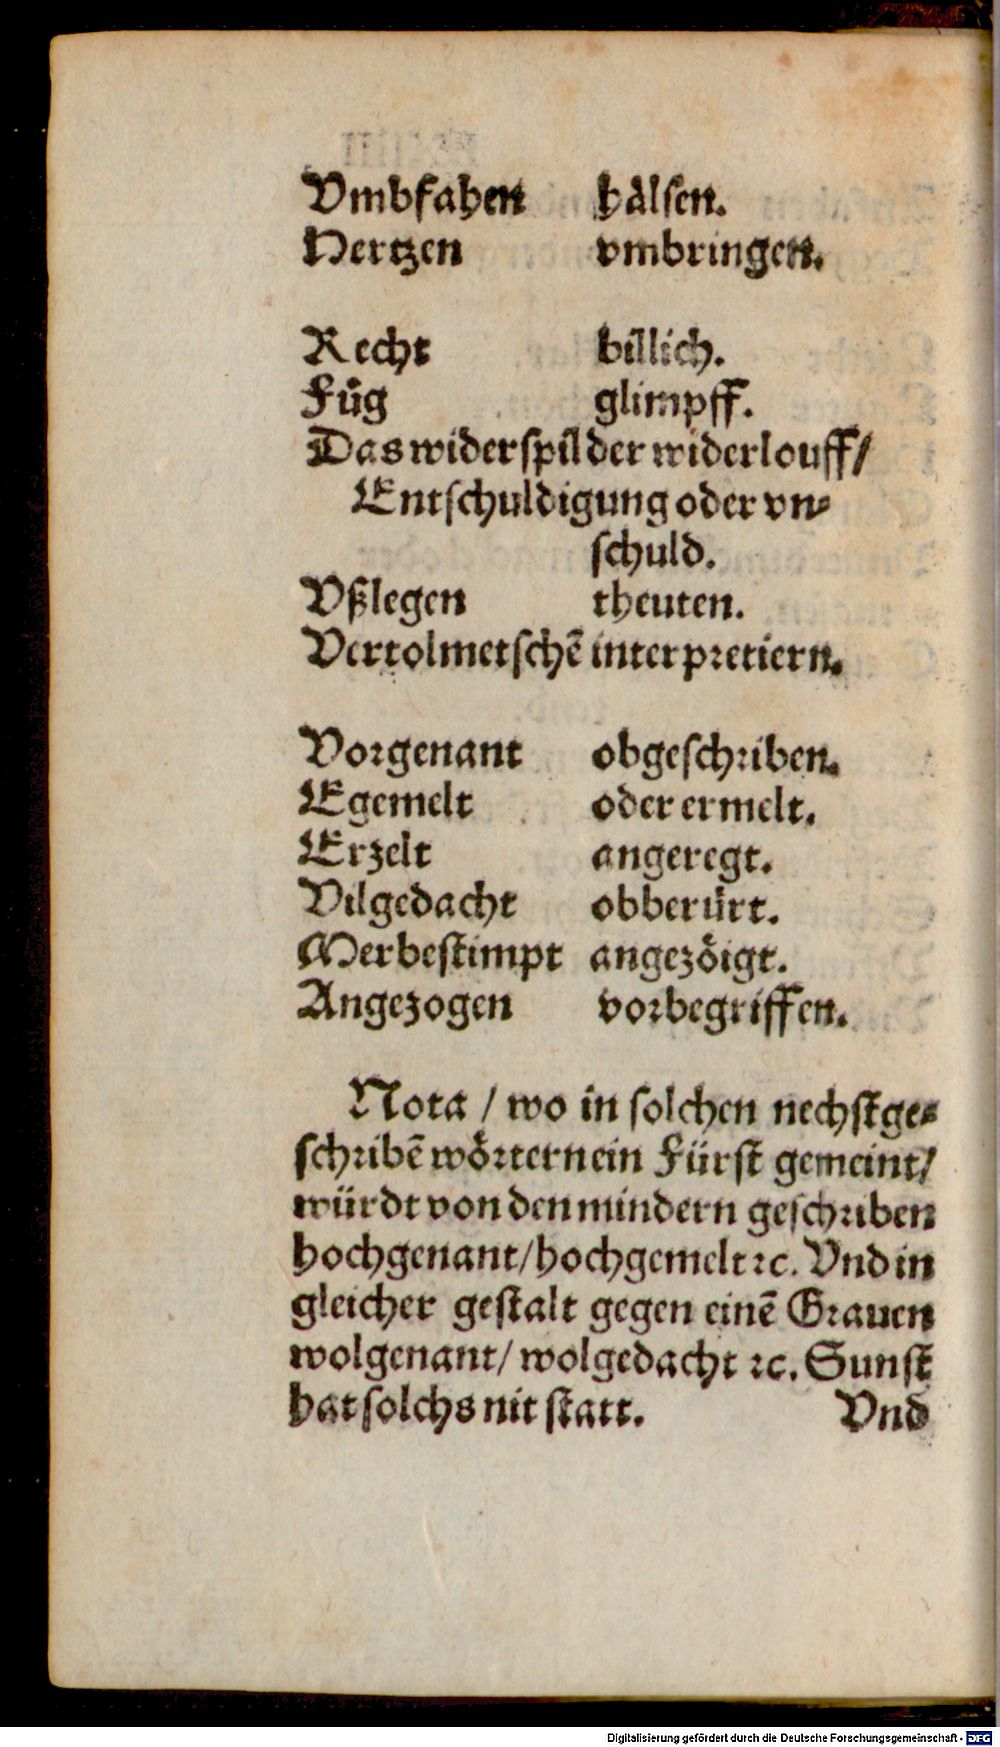 Vmbfahen hålsen.
Hertzen vmbringen.
Recht billich.
Fůg glimpff.
Das widerspil der widerlouff/
Entschuldigung oder vn⸗
schuld.
Vßlegen theuten.
Vertolmetschē interpretiern.
Vorgenant obgeschriben.
Egemelt oder ermelt.
Erzelt angeregt.
Vilgedacht obberürt.
Merbestimpt angezöigt.
Angezogen vorbegriffen.
Nota / wo in solchen nechstge⸗
schribē wörtern ein Fürst gemeint/
würdt von den mindern geschriben
hochgenant/hochgemelt ꝛc. Vnd in
gleicher gestalt gegen einē Grauen
wolgenant/ wolgedacht ꝛc. Sunst
hat solchs nit statt. Vnd
Digitalisierung gefördert durch die Deutsche Forschungsgemeinschaft - DFG